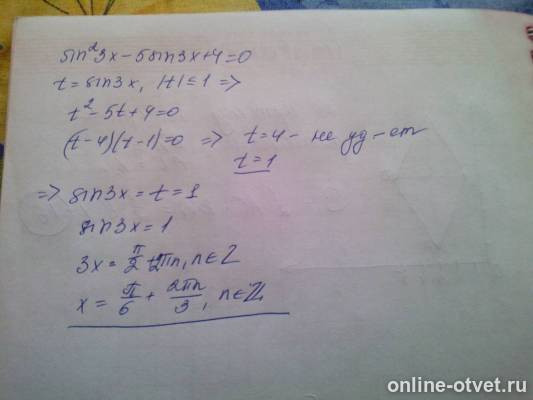 sin²3x - 5sin3x + 4 = 0
t = sin3x, |t| ≤ 1 =>
t² - 5t + 4 = 0
(t - 4)(t - 1) = 0 => t = 4 - не уд-ет
t = 1
=> sin3x = t = 1
sin3x = 1
3x = π/2 + 2πn, n∈Z
x = π/6 + 2πn/3, n∈Z
online-otvet.ru